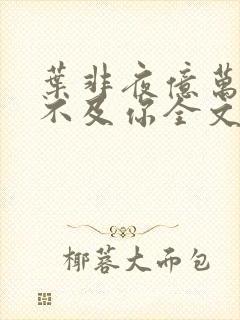 葉非夜億萬
不及你全文
椰蓉大而包